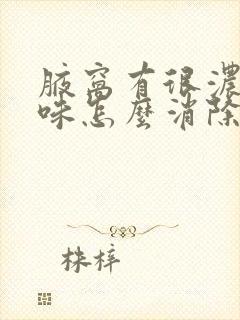 腋窝有很濃
味怎麼消除
株梓